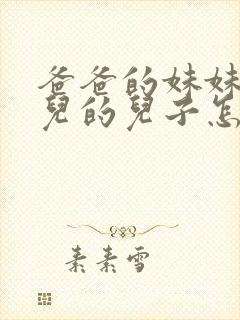 爸爸的妹妹
兒的兒子怎
素素雪